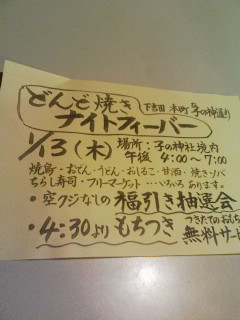 どんど焼き 下吉田 本町 子の神通り
ナイトフィーバー
1/13(木) 場所:子の神社境内
午後 4:00~7:00
焼鳥・おでん・うどん・おしるこ・甘酒・焼きソバ
ちらし寿司・フリーマーケット…いろいろあります。
・空クジなしの福引き抽選会
つきたてのおもち
・4:30よりもちつき 無料サービ